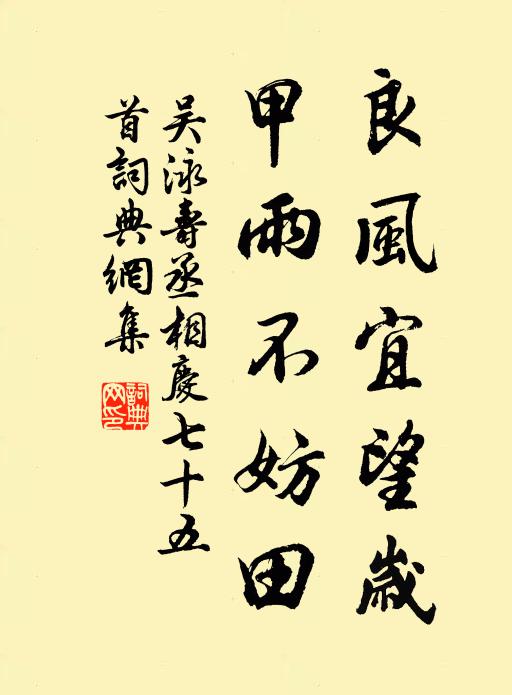 良風宜望歲
甲雨不妨田
吴泳壽丞相慶七十五
首詞典網集
詞典
网印